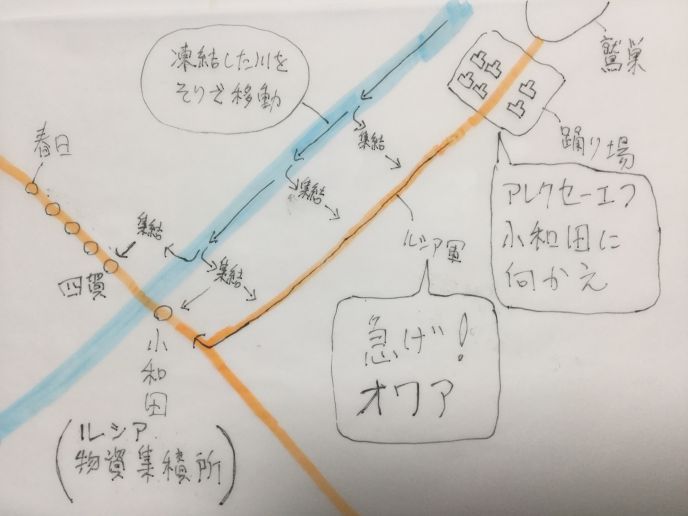 凍結した川を
そりで移動
鷲巣
踊り場
春日
集結
集結
集結
集結
四賀
ルシア軍
アレクセーエフ
小和田に
向かえ
急げ!
オワア
小和田
(ルシア
物資集積所)